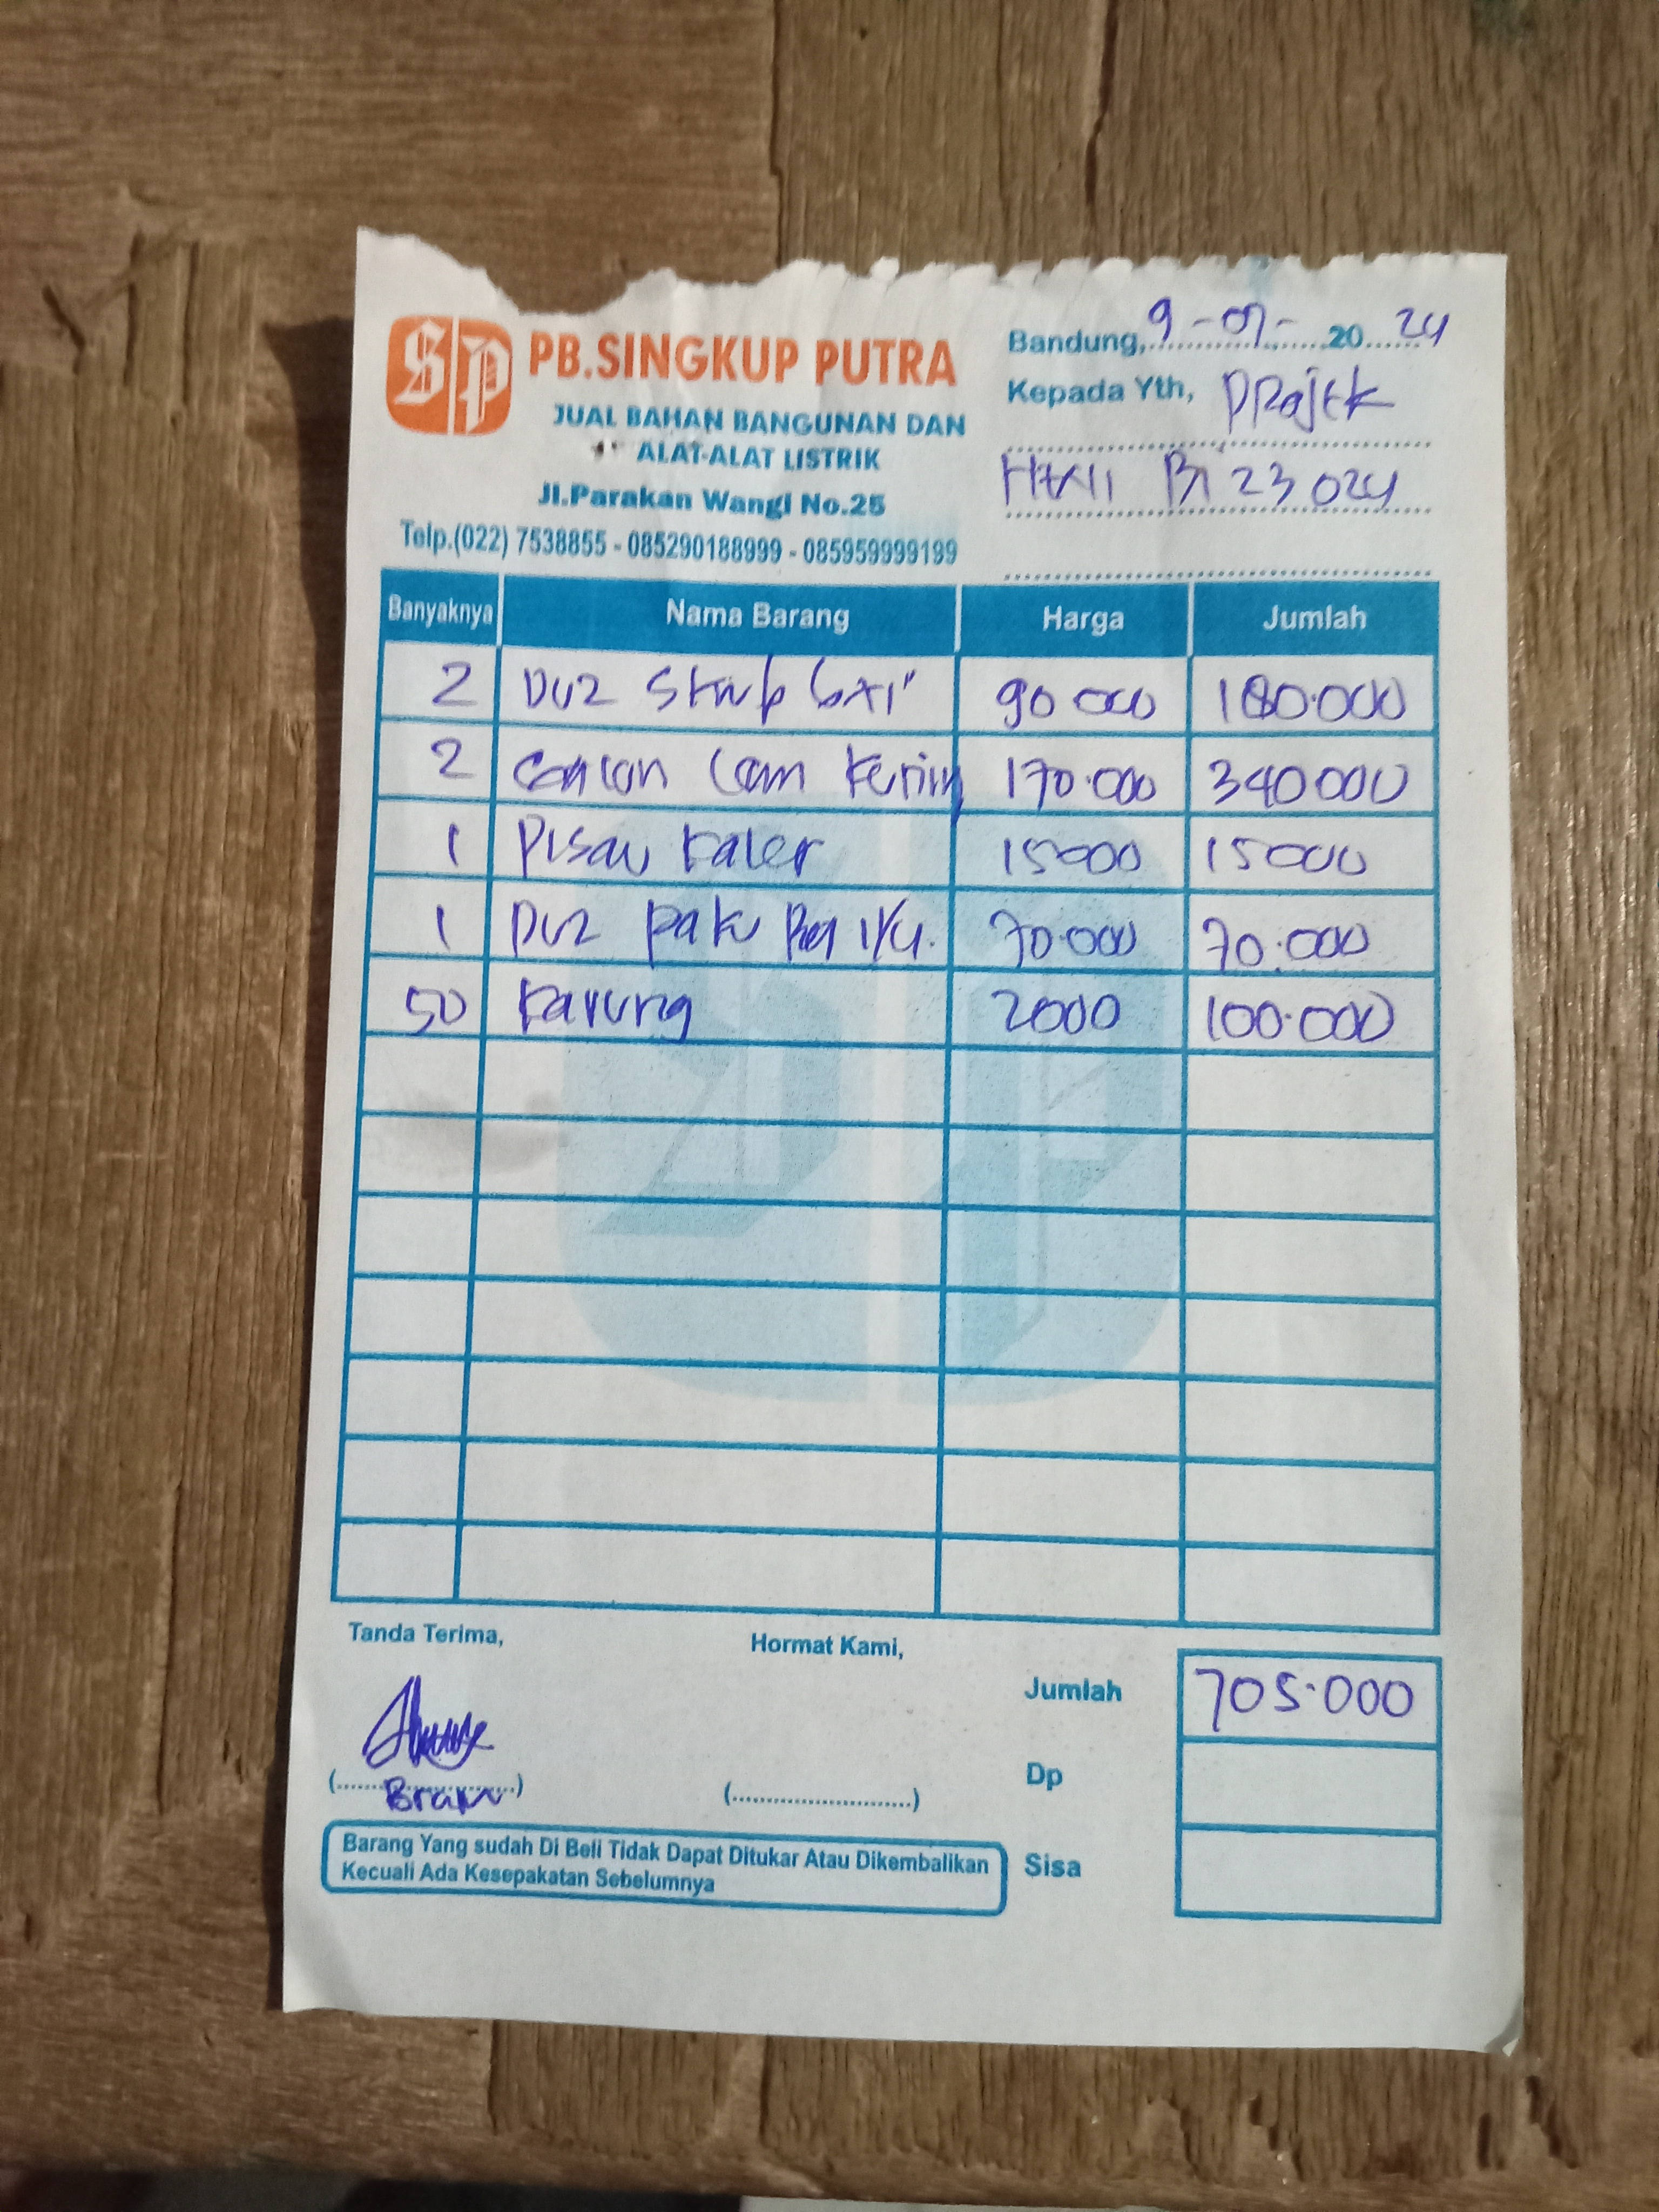 SP PB.SINGKUP PUTRA
JUAL BAHAN BANGUNAN DAN
ALAT-ALAT LISTRIK
Jl.Parakan Wangi No.25
Telp.(022) 7538855 - 085290188999 - 085959999199
Bandung, 9 - 07 - 20 24
Kepada Yth, PRojek
23024
Banyaknya Nama Barang Harga Jumlah
2 Duz 6x1" 90 000 180.000
2 Lem 170.000 340000
1 Pisau 15000 15000
1 Duz paku 70.000 70.000
50 karung 2000 100.000
Tanda Terima,
Hormat Kami,
Jumlah 705.000
Dp
(....................) (....................)
Bram
Barang Yang sudah Di Beli Tidak Dapat Ditukar Atau Dikembalikan
Kecuali Ada Kesepakatan Sebelumnya
Sisa